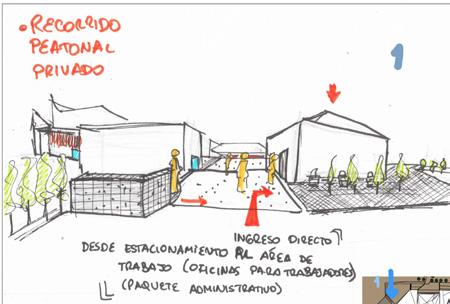 • RECORRIDO
PEATONAL
PRIVADO
1
INGRESO DIRECTO
DESDE ESTACIONAMIENTO AL AREA DE
TRABAJO (OFICINAS PARA TRABAJADORES)
(PAQUETE ADMINISTRATIVO)
1